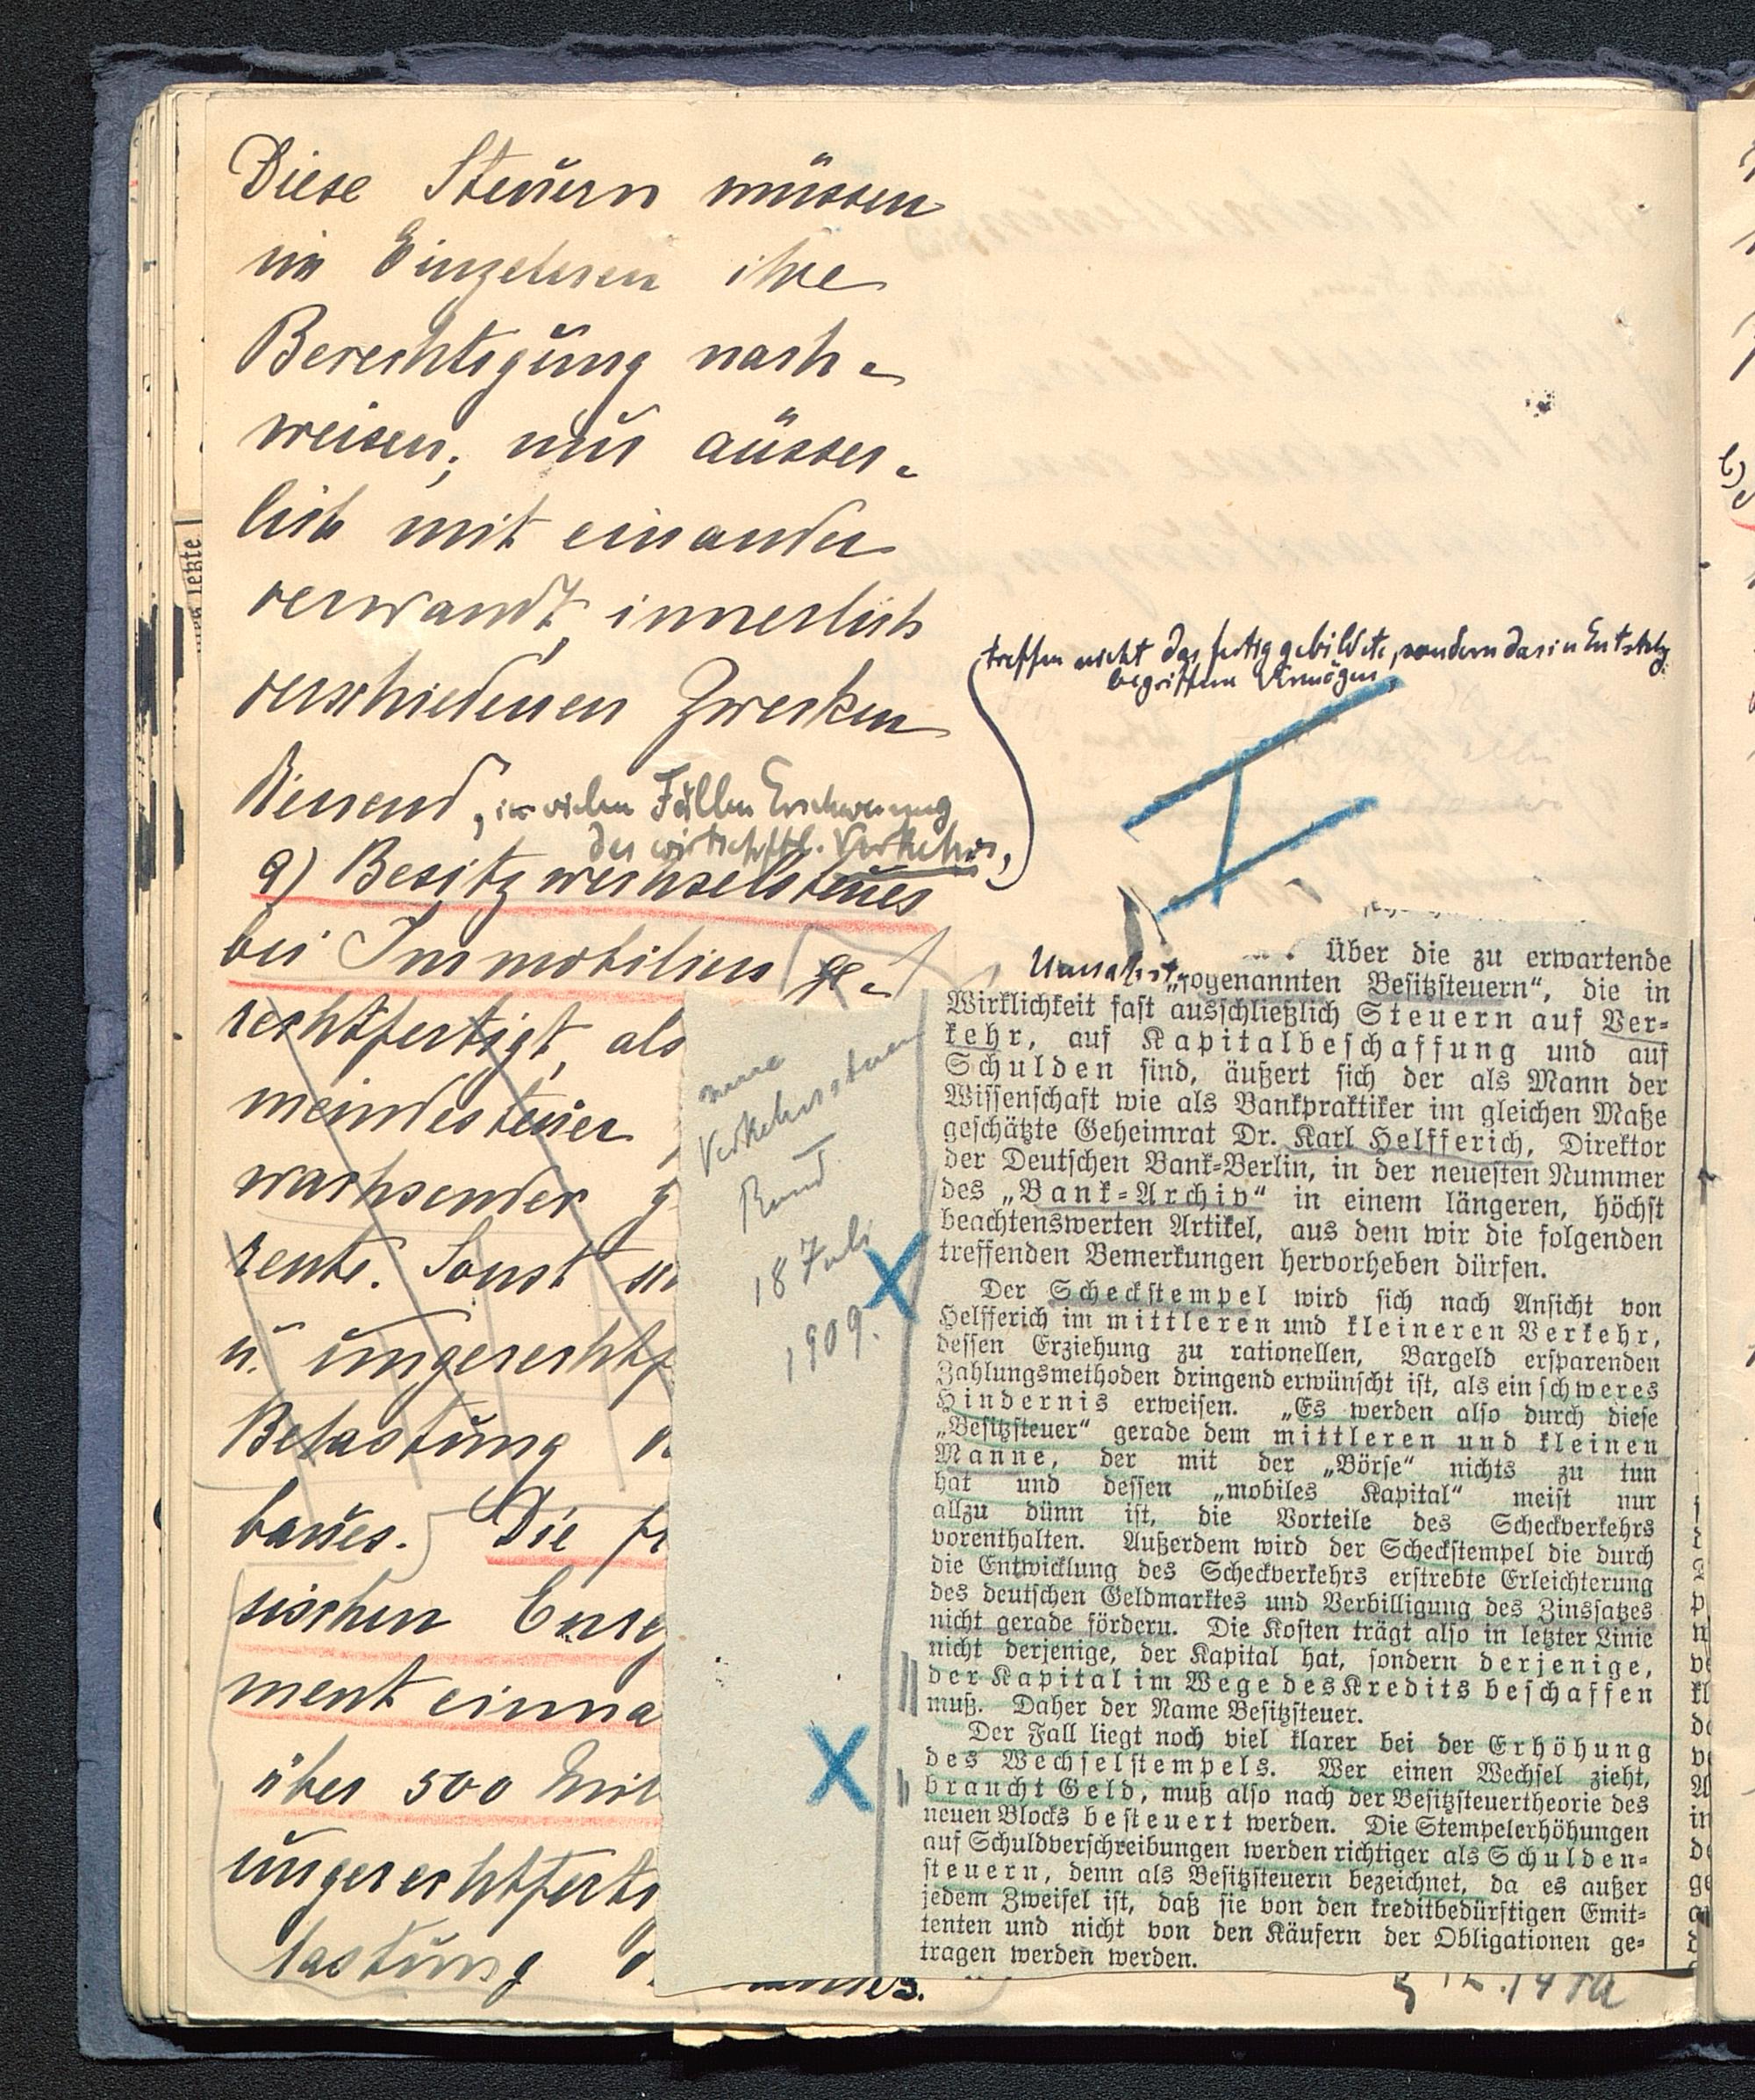 Diese Steuern müssen
im Einzelnen ihre
Berechtigung nach-
weisen; nur äusser-
lich mit einander
verwandt, innerlich
verschiedenen Zwecken
dienend, in vielen Fällen Erschwerung
des wirtschftl. Verkehrs,
treffen nicht das fertig gebildete, sondern das in Entstehg
begriffene Vermögen
I
a) Besitzwechselsteuer
bei Immobilien ge-
rechtfertigt, als
meindesteuer
wachsender
rente. Sonst
u. ungerechtf
Belastung
baues. Die
sischen Enreg
ment einna
über 500 Mil
ungerechtferti
lastung
neue
Verkehrssteuern
Bund
18 Juli
1909.
Über die zu erwartende
„sogenannten Besitzsteuern“, die in
Wirklichkeit fast ausschließlich Steuern auf Ver-
kehr, auf Kapitalbeschaffung und auf
Schulden sind, äußert sich der als Mann der
Wissenschaft wie als Bankpraktiker im gleichen Maße
geschätzte Geheimrat Dr. Karl Helfferich, Direktor
der Deutschen Bank-Berlin, in der neuesten Nummer
des „Bank-Archiv“ in einem längeren, höchst
beachtenswerten Artikel, aus dem wir die folgenden
treffenden Bemerkungen hervorheben dürfen.
Der Scheckstempel wird sich nach Ansicht von
Helfferich im mittleren und kleineren Verkehr,
dessen Erziehung zu rationellen, Bargeld ersparenden
Zahlungsmethoden dringend erwünscht ist, als ein schweres
Hindernis erweisen. „Es werden also durch diese
„Besitzsteuer“ gerade dem mittleren und kleinen
Manne, der mit der „Börse“ nichts zu tun
hat und dessen „mobiles Kapital“ meist nur
allzu dünn ist, die Vorteile des Scheckverkehrs
vorenthalten. Außerdem wird der Scheckstempel die durch
die Entwicklung des Scheckverkehrs erstrebte Erleichterung
des deutschen Geldmarktes und Verbilligung des Zinssatzes
nicht gerade fördern. Die Kosten trägt also in letzter Linie
nicht derjenige, der Kapital hat, sondern derjenige,
der Kapital im Wege des Kredits beschaffen
muß. Daher der Name Besitzsteuer.
Der Fall liegt noch viel klarer bei der Erhöhung
des Wechselstempels. Wer einen Wechsel zieht,
braucht Geld, muß also nach der Besitzsteuertheorie des
neuen Blocks besteuert werden. Die Stempelerhöhungen
auf Schuldverschreibungen werden richtiger als Schulden-
steuern, denn als Besitzsteuern bezeichnet, da es außer
jedem Zweifel ist, daß sie von den kreditbedürftigen Emit-
tenten und nicht von den Käufern der Obligationen ge-
tragen werden werden.
letzte